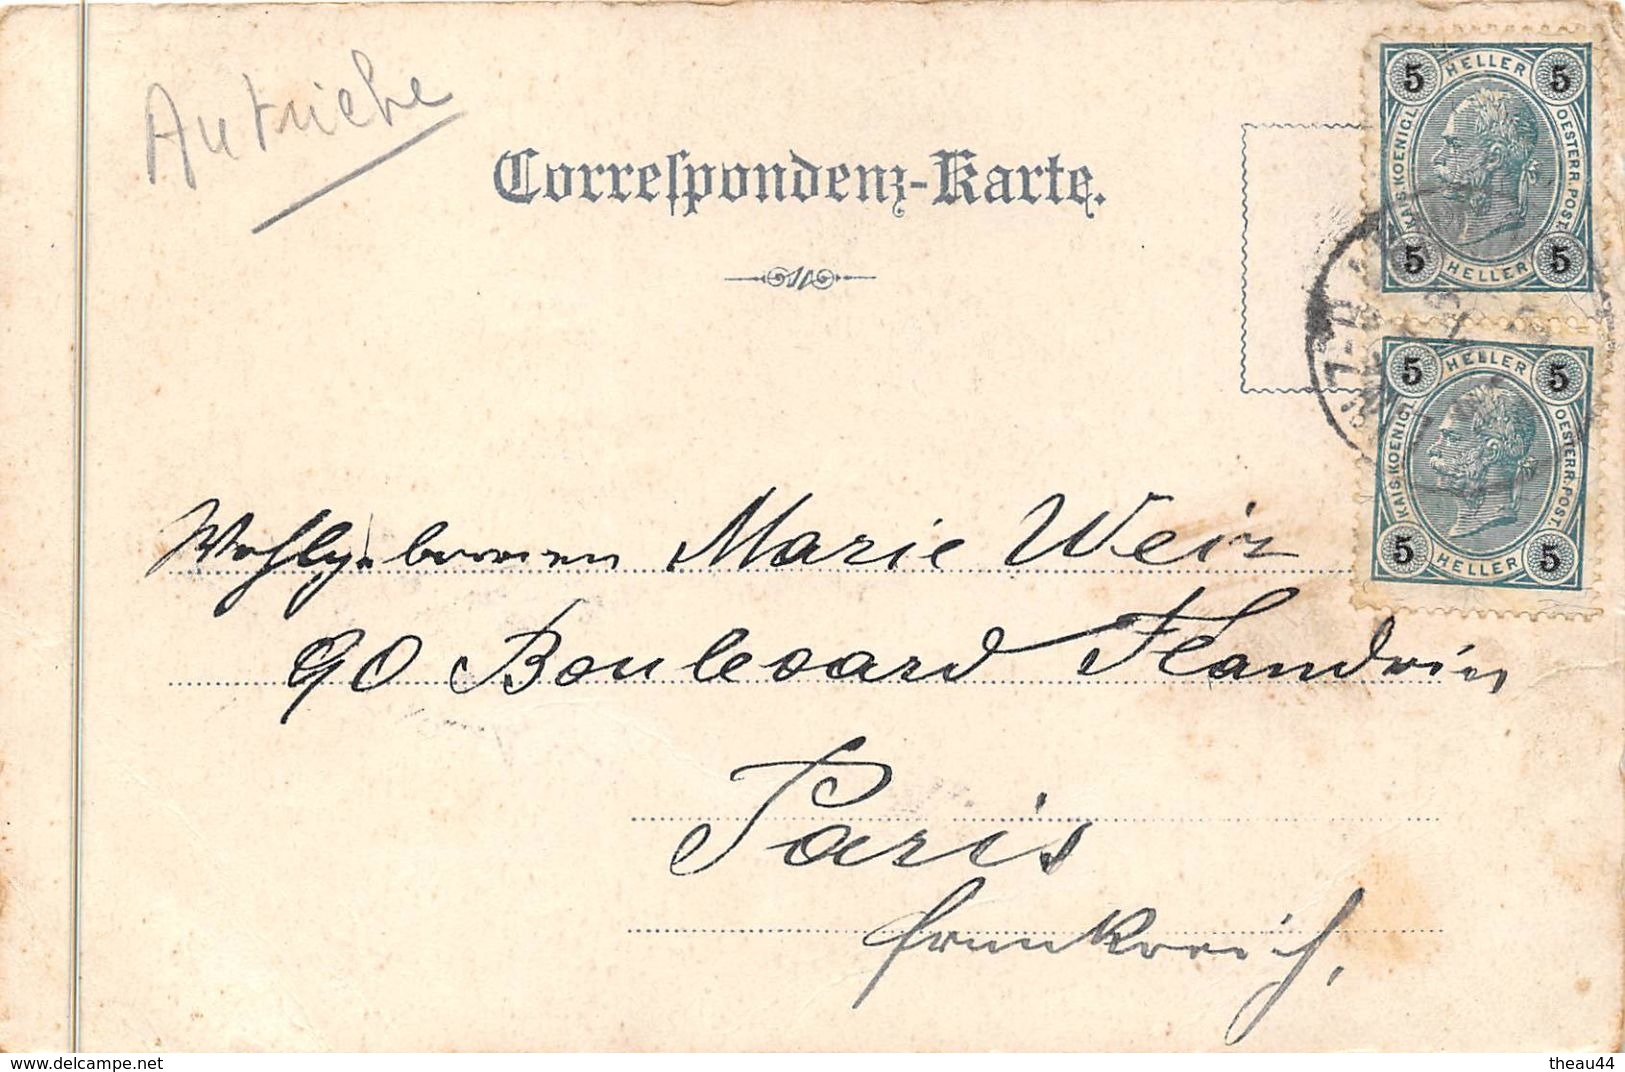 Autriche
Correſpondenz-Karte.
5 HELLER 5
KAIS. KOENIGL. OESTERR. POST.
5 HELLER 5
5 HELLER 5
KAIS. KOENIGL. OESTERR. POST.
5 HELLER 5
Wohlgeborenen Marie Weir
90 Boulevard Flandrin
Paris
Frankreich.
delcampe.net
theau44